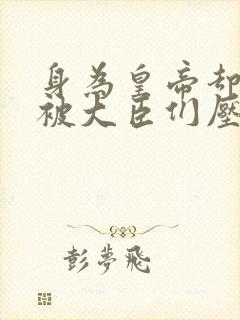 身為皇帝却
被大臣們壓
彭夢飛